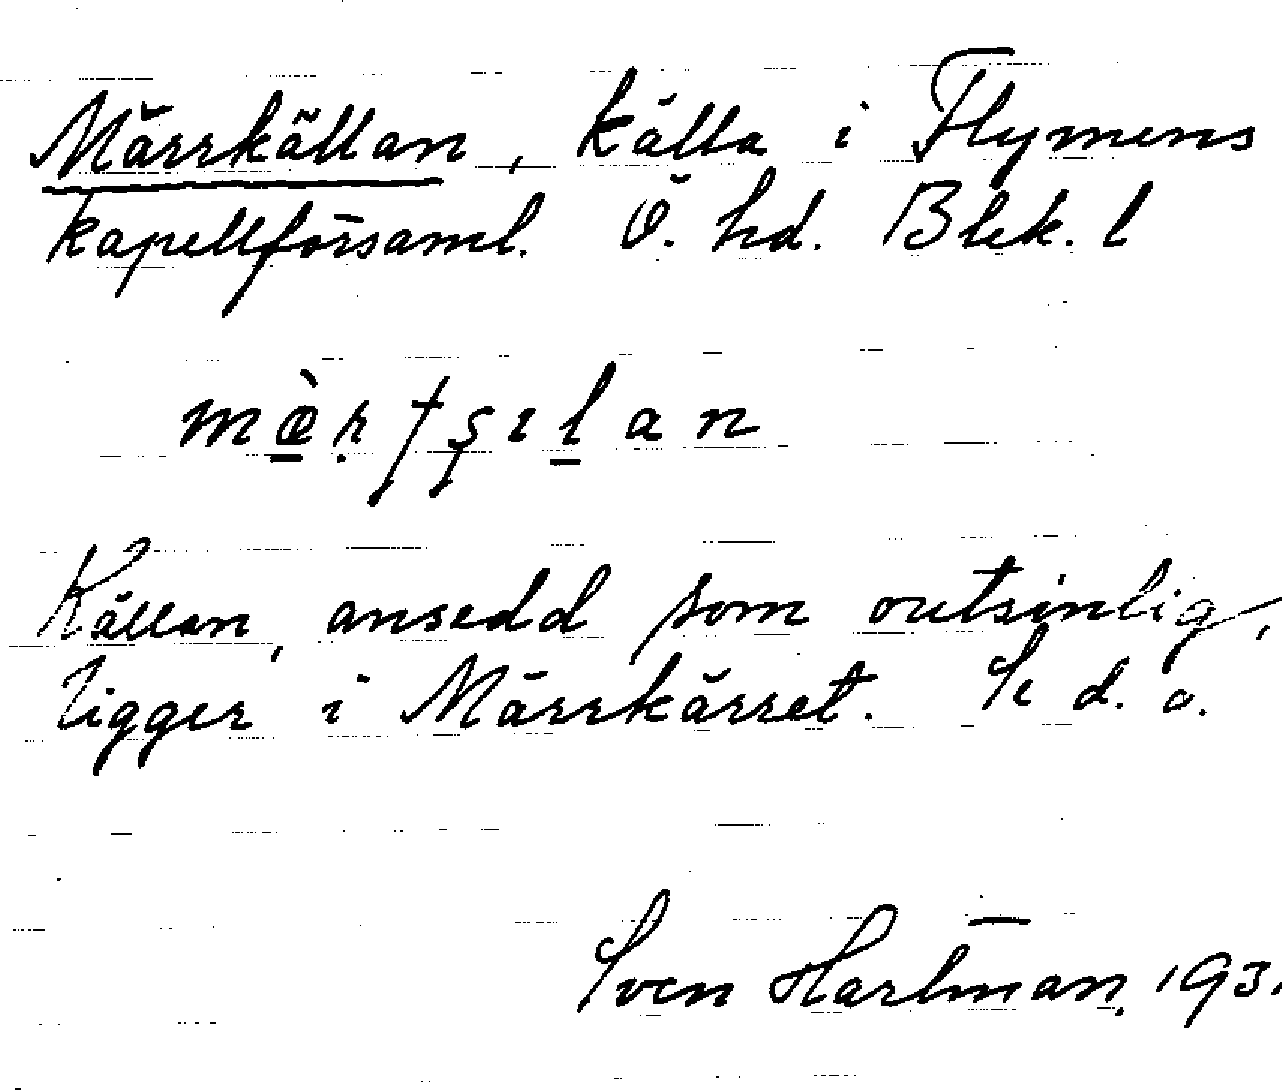 Märrkällan, källa i Flymens
kapellförsaml. Ö. hd. Blek. l
Källan, ansedd som outsinlig,
ligger i Märrkärret. Se d. o.
Sven Hartman. 193